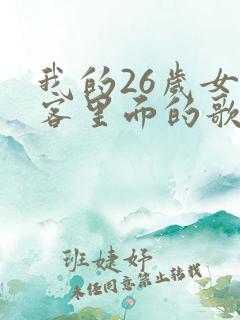 我的26岁女
客里面的歌
班婕妤
未经同意禁止转载